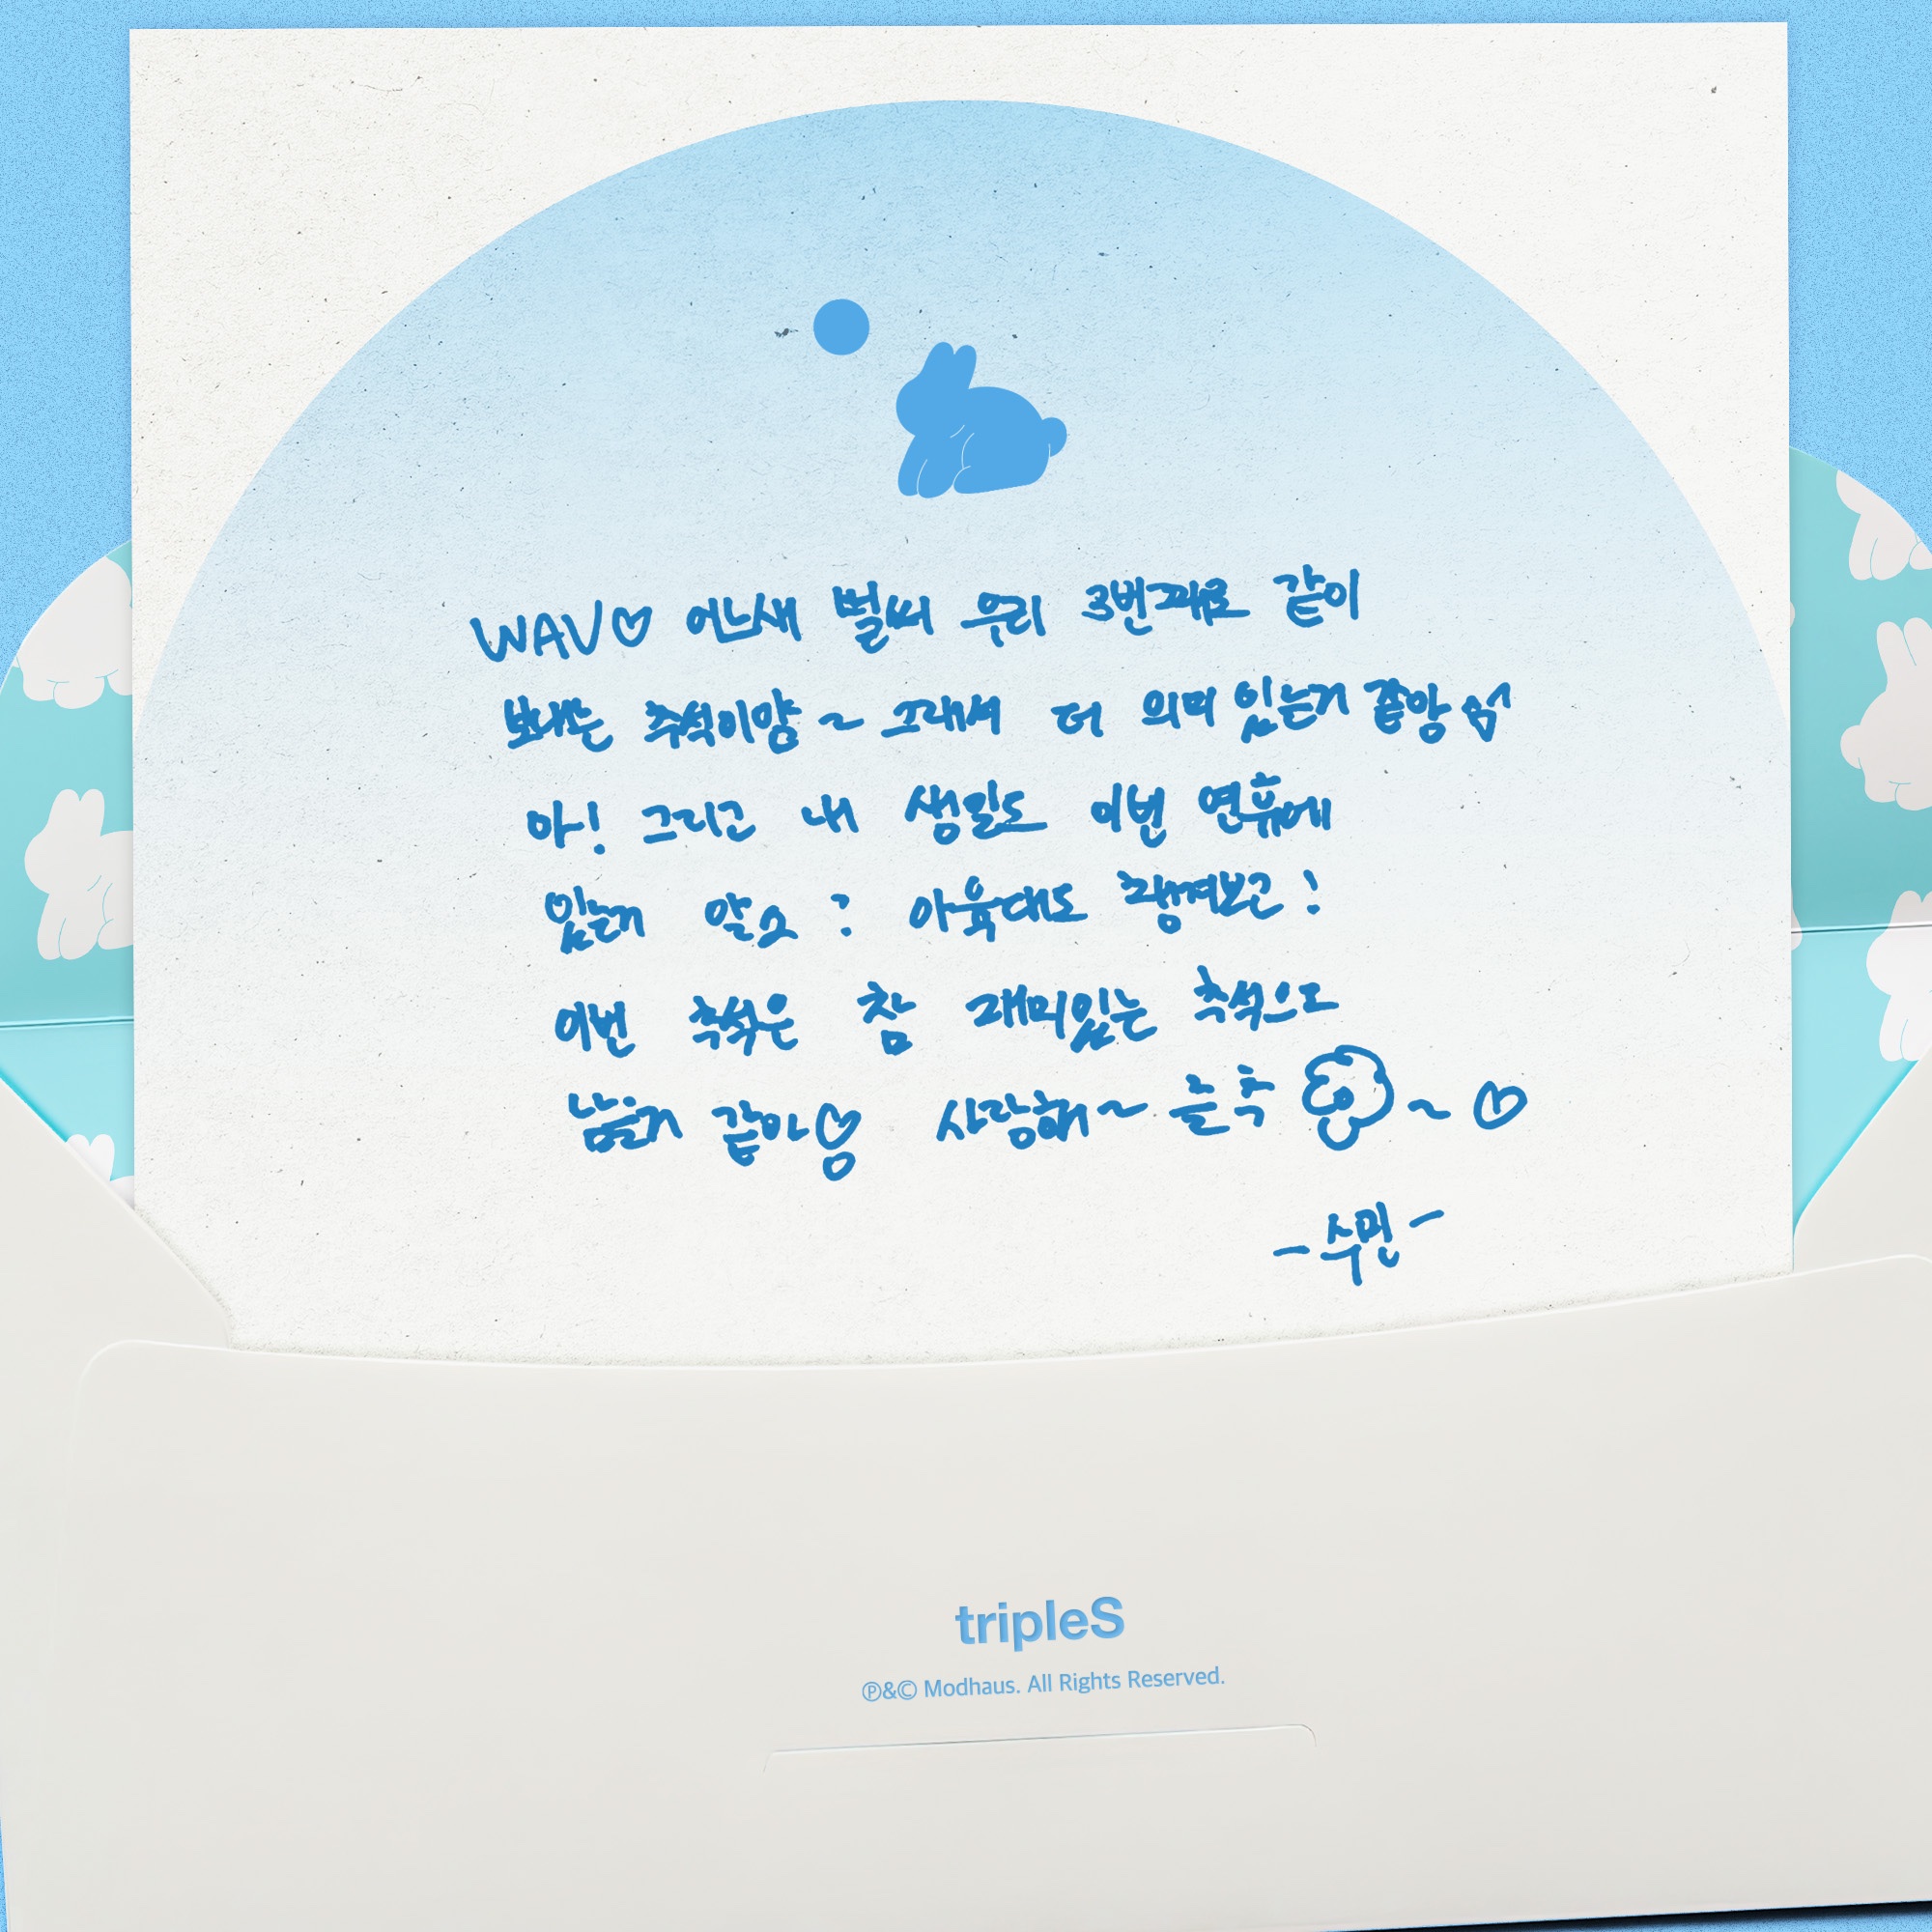 WAV♡ 어느새 벌써 우리 3번째로 같이
보내는 추석이양~ 그래서 더 의미 있는거 쫗앙
아! 그리고 내 생일도 이번 연휴에
있는거 알죠? 아육대도 챙겨보고!
이번 추석은 참 재미있는 추석으로
남을거 같아♡ 사랑해~ 즐추 ~♡
-수민-
tripleS
Ⓟ&© Modhaus. All Rights Reserved.